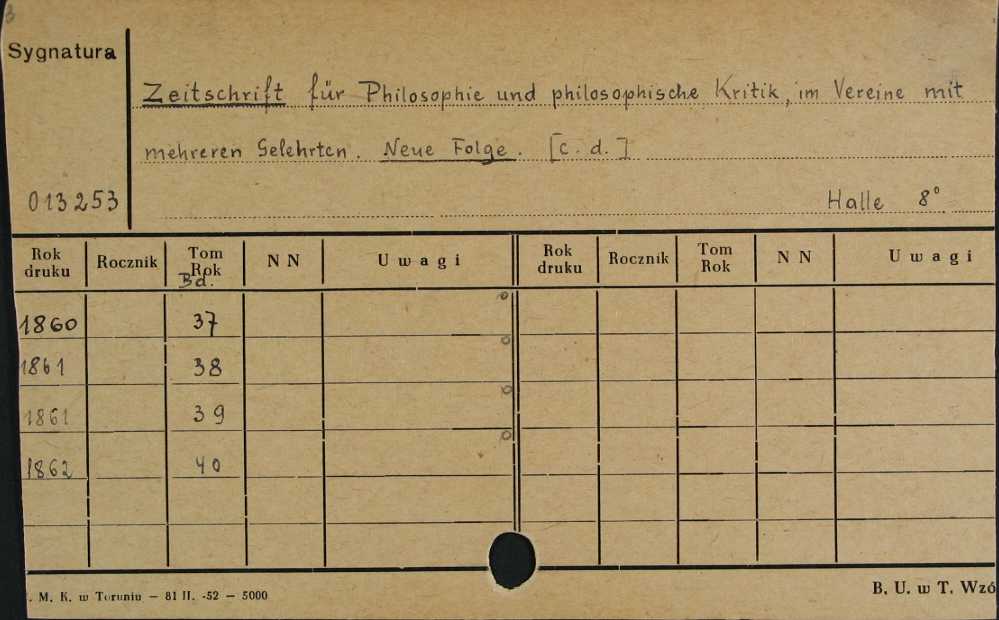 3
Sygnatura
Zeitschrift für Philosophie und philosophische Kritik, im Vereine mit
mehreren Gelehrten. Neue Folge. [c. d.]
013253 Halle 8°
Rok druku Rocznik Tom Rok NN Uwagi Rok druku Rocznik Tom Rok NN Uwagi
Bd.
1860 37
1861 38
1861 39
1862 40
. M. K. w Toruniu — 81 II. -52 — 5000 B. U. w T. Wzó